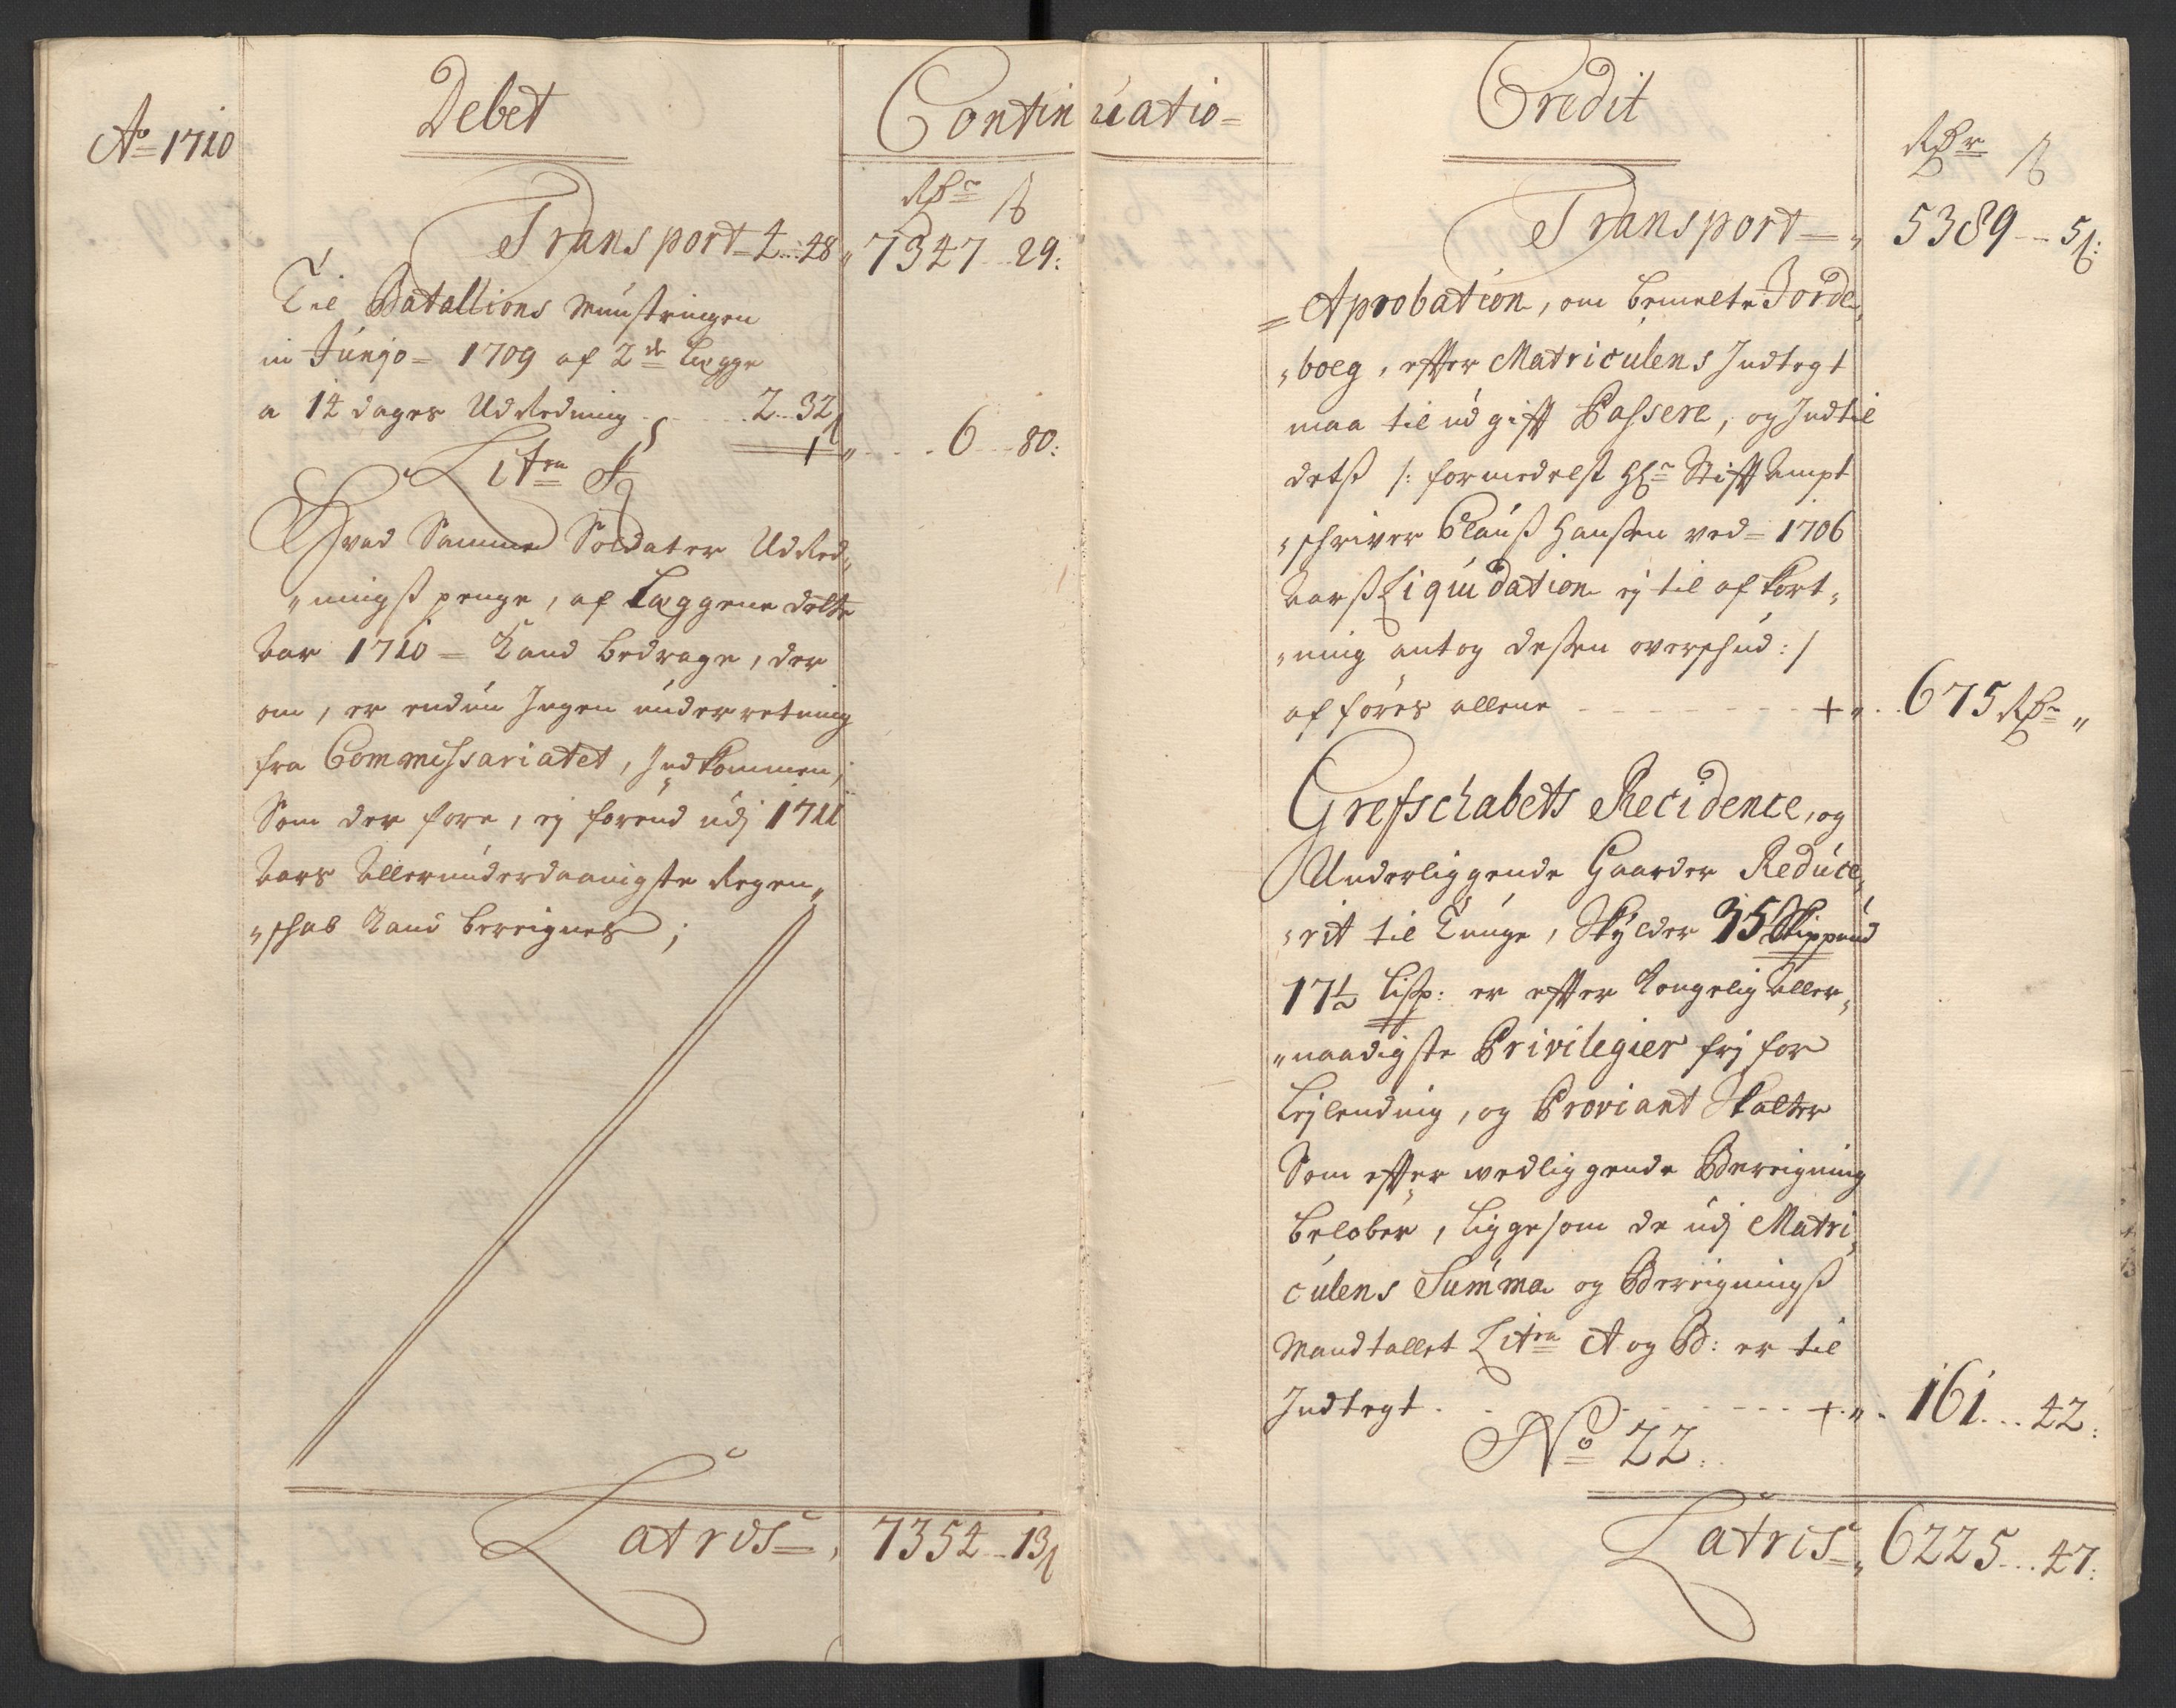 Ao 1710
Debet
Continuatio
Rdr ß
Transport 4..48 7347..29:
Til Batallions Mùnstringen
in Junjo 1709 af 2de Lægge
a 14 dages Udredning 2..32ß
6..80:
Litra F
Hvad Summa Soldater Udred-
ningß penge, af Læggene dette
Aar 1710 Kand bedrage, der
om, er endùu Ingen ùnderretning
fra Commissariatet, Indkommen,
Som der fore, ej forend ùdj 1711
Aars Allerùnderdaanigste Regen-
schab Kand bereignes;
Lateris 7354..13ß
Credit
Rdr ß
Transport 5389..5ß:
Aprobation, om bemelte Jorde-
boeg, efter Matriculens Indtegt
maa til ùdgift Passere, og Indtil
detß /: formedelst Hr Stiftampt
schriver Clauß Hanßen ved 1706
Aarß Liquidation ej til afkort-
ning antog deßen overschud :/
afføres allene + 675 Rdr „
Grefschabets Recidence, og
Underliggende Gaarder Reduce-
rit til Tùnge, Skylder 35 Skippund
17½ Lisp: er efter Kongelig Aller-
naadigste Privilegier frj for
Lejlending, og Proviant Skatter
Som efter vedliggende Bereigning
beløber, ligesom de ùdj Matri-
culens Summa og Bereigningß
Mandtallet Litra A og B: er til
Indtegt + 161...42:
No 22.
Lateris 6225...47: